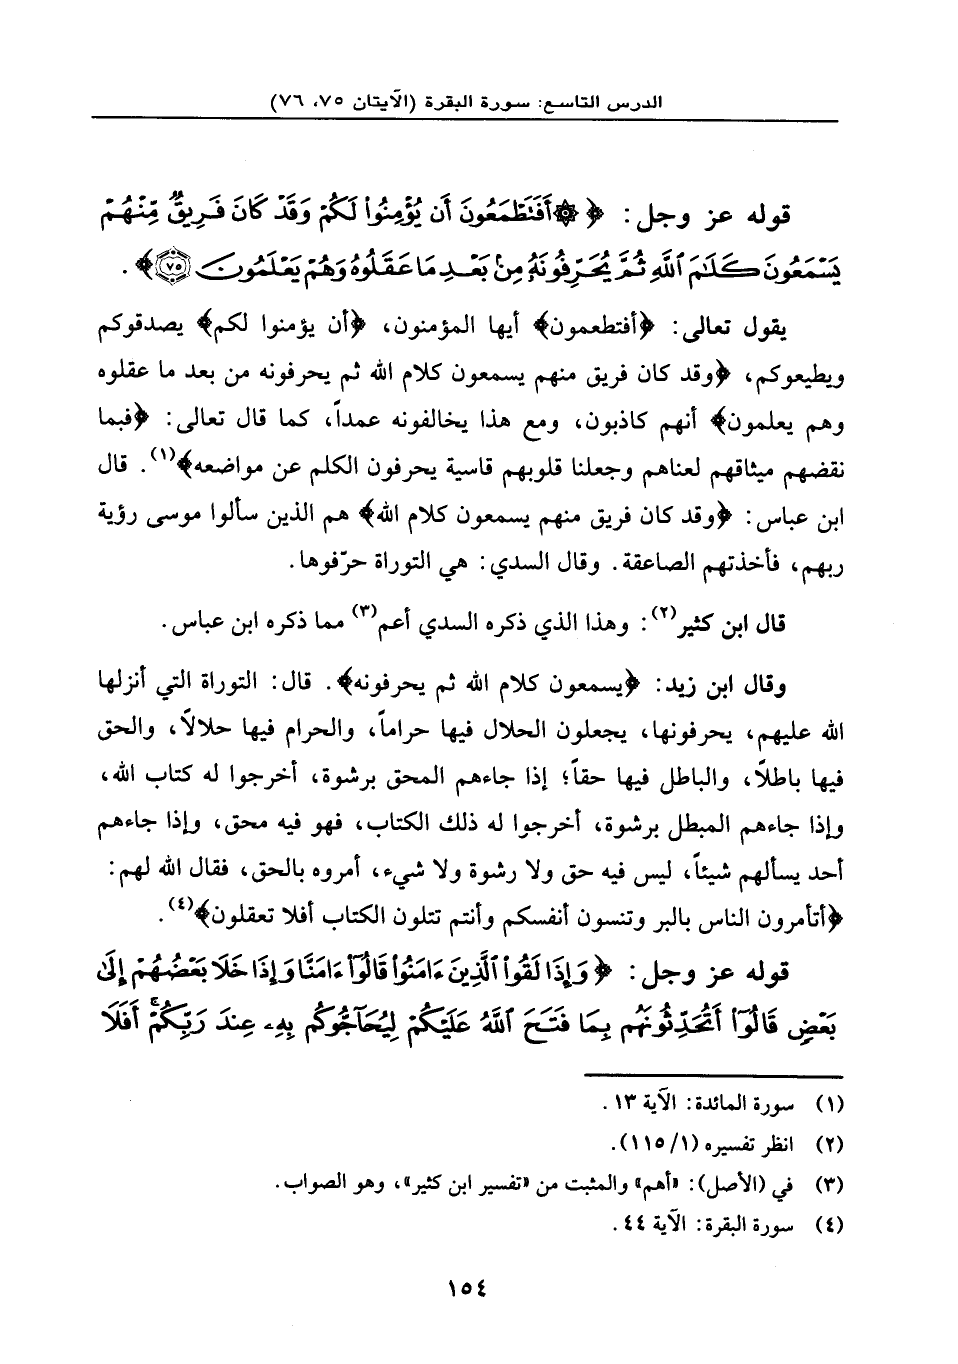 الدرس التاسع: سورة البقرة (الآيتان ٧٥، ٧٦)
قوله عز وجل: ﴿ ۞ أَفَتَطْمَعُونَ أَن يُؤْمِنُوا۟ لَكُمْ وَقَدْ كَانَ فَرِيقٌ مِّنْهُمْ
يَسْمَعُونَ كَلَٰمَ ٱللَّهِ ثُمَّ يُحَرِّفُونَهُۥ مِنۢ بَعْدِ مَا عَقَلُوهُ وَهُمْ يَعْلَمُونَ ٧٥ ﴾.
يقول تعالى: ﴿أفتطعمون﴾ أيها المؤمنون، ﴿أن يؤمنوا لكم﴾ يصدقوكم
ويطيعوكم، ﴿وقد كان فريق منهم يسمعون كلام الله ثم يحرفونه من بعد ما عقلوه
وهم يعلمون﴾ أنهم كاذبون، ومع هذا يخالفونه عمداً، كما قال تعالى: ﴿فبما
نقضهم ميثاقهم لعناهم وجعلنا قلوبهم قاسية يحرفون الكلم عن مواضعه﴾(١). قال
ابن عباس: ﴿وقد كان فريق منهم يسمعون كلام الله﴾ هم الذين سألوا موسى رؤية
ربهم، فأخذتهم الصاعقة. وقال السدي: هي التوراة حرّفوها.
قال ابن كثير(٢): وهذا الذي ذكره السدي أعم(٣) مما ذكره ابن عباس.
وقال ابن زيد: ﴿يسمعون كلام الله ثم يحرفونه﴾. قال: التوراة التي أنزلها
الله عليهم، يحرفونها، يجعلون الحلال فيها حراماً، والحرام فيها حلالاً، والحق
فيها باطلاً، والباطل فيها حقاً؛ إذا جاءهم المحق برشوة، أخرجوا له كتاب الله،
وإذا جاءهم المبطل برشوة، أخرجوا له ذلك الكتاب، فهو فيه محق، وإذا جاءهم
أحد يسألهم شيئاً، ليس فيه حق ولا رشوة ولا شيء، أمروه بالحق، فقال الله لهم:
﴿أتأمرون الناس بالبر وتنسون أنفسكم وأنتم تتلون الكتاب أفلا تعقلون﴾(٤).
قوله عز وجل: ﴿ وَإِذَا لَقُوا۟ ٱلَّذِينَ ءَامَنُوا۟ قَالُوٓا۟ ءَامَنَّا وَإِذَا خَلَا بَعْضُهُمْ إِلَىٰ
بَعْضٍ قَالُوٓا۟ أَتُحَدِّثُونَهُم بِمَا فَتَحَ ٱللَّهُ عَلَيْكُمْ لِيُحَآجُّوكُم بِهِۦ عِندَ رَبِّكُمْ ۚ أَفَلَا
(١) سورة المائدة: الآية ١٣.
(٢) انظر تفسيره (١/ ١١٥).
(٣) في (الأصل): «أهم» والمثبت من «تفسير ابن كثير»، وهو الصواب.
(٤) سورة البقرة: الآية ٤٤.
١٥٤